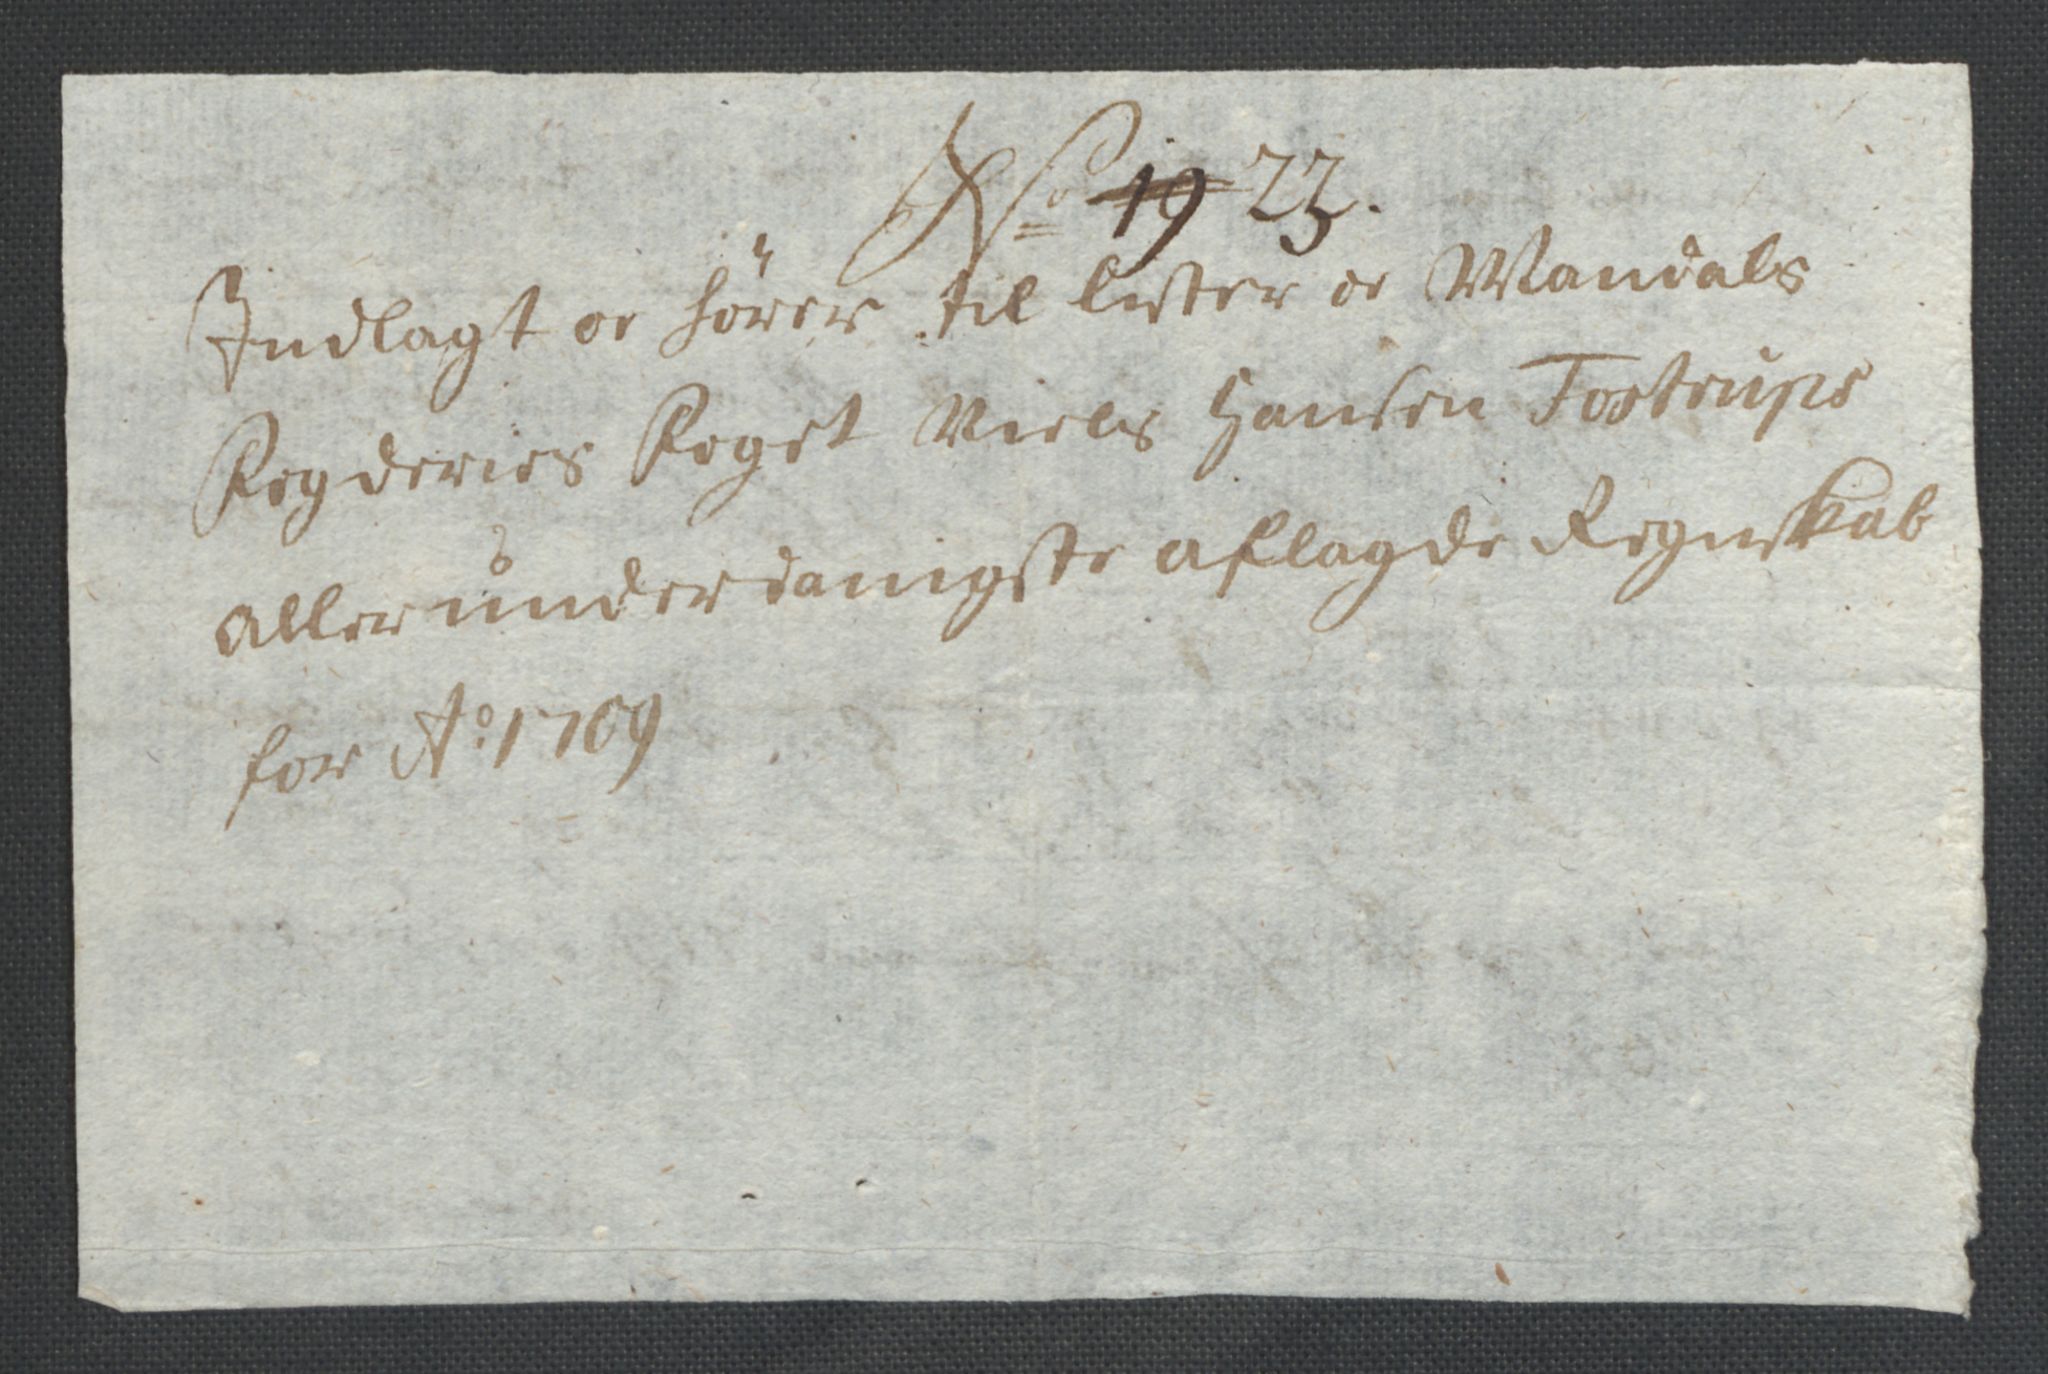 No 19 23.
Indlagt oc hörer til Lister oc Mandals
Fogderies Foget Niels Hansen Tostrups
allerunderdanigste aflagde Regnskab
for Ao 1709